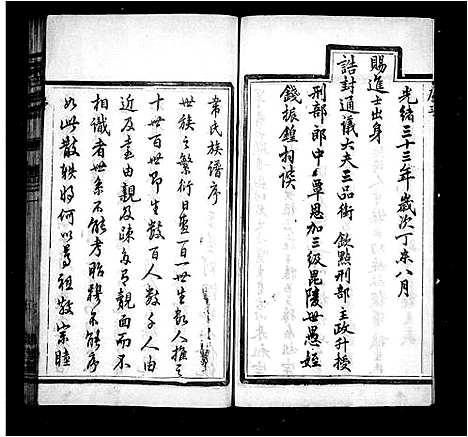 光緒三十三年歲次丁未八月
賜進士出身
誥封通議大夫三品銜 欽點刑部主政升授
刑部郎中 覃恩加三級毘陵世愚姪
錢振鍠拜譔
常氏族譜序
世族之繁衍日盛一日一世生數人推之
十世百世即生數百人數千人由
近及遠由親及疎乃有覿面而不
相識者世系不能考昭穆不能序
如此散軼將何以尊祖敬宗睦